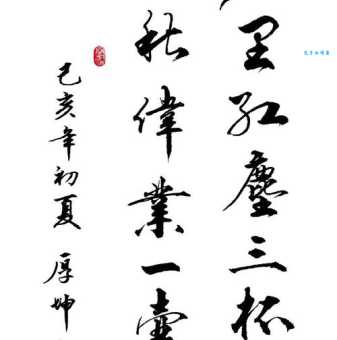 里紅塵三杯
秋偉業一壺
己亥年初夏 厚坤